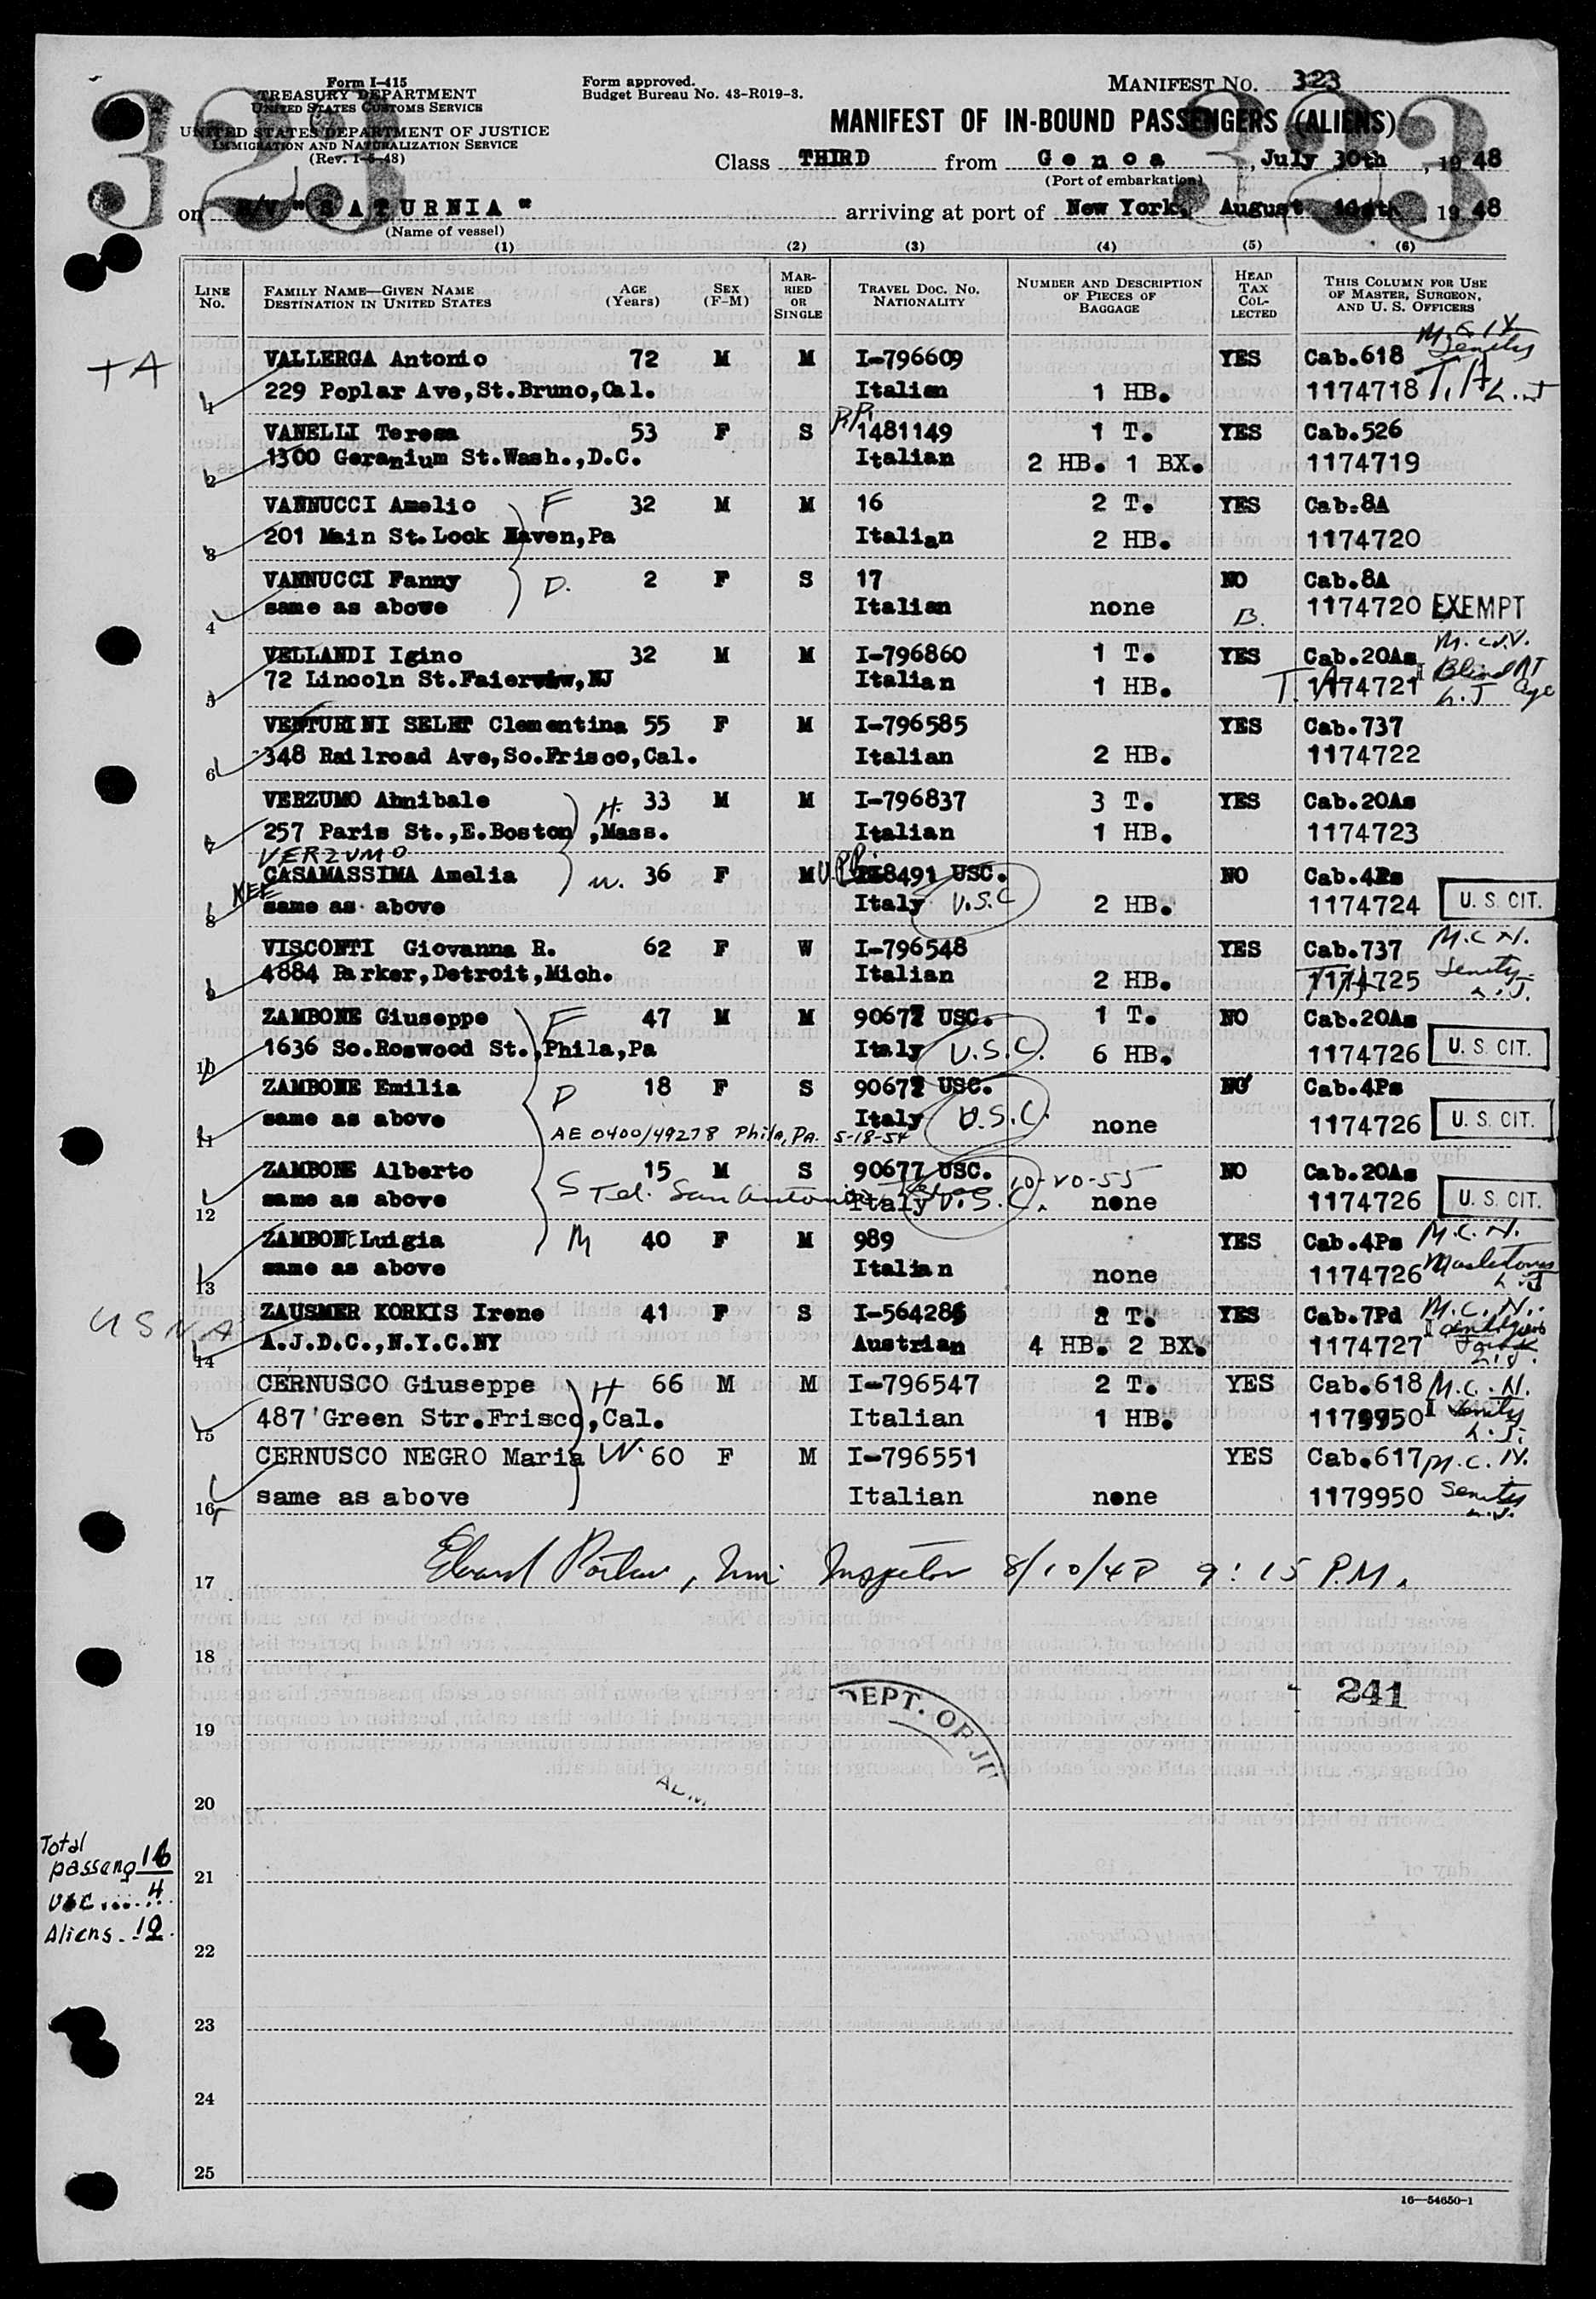 Form I-415
TREASURY DEPARTMENT
UNITED STATES CUSTOMS SERVICE
UNITED STATES DEPARTMENT OF JUSTICE
IMMIGRATION AND NATURALIZATION SERVICE
(Rev. 1-5-48)
Form approved.
Budget Bureau No. 43-R019-3.
MANIFEST No. 323
323 323
MANIFEST OF IN-BOUND PASSENGERS (ALIENS)
Class THIRD from Genoa, July 30th, 1948
(Port of embarkation)
on M/V "SATURNIA" arriving at port of New York, August 1948
(Name of vessel)
(1) (2) (3) (4) (5) (6)
LINE No. FAMILY NAME—GIVEN NAME DESTINATION IN UNITED STATES AGE (Years) SEX (F-M) MARRIED OR SINGLE TRAVEL DOC. NO. NATIONALITY NUMBER AND DESCRIPTION OF PIECES OF BAGGAGE HEAD TAX COLLECTED THIS COLUMN FOR USE OF MASTER, SURGEON, AND U. S. OFFICERS
TA VALLERGA Antonio 72 M M I-796609 YES Cab.618 Senility
1 229 Poplar Ave,St.Bruno,Cal. Italian 1 HB. 1174718 L.J
VANELLI Teresa 53 F S PP. 1481149 1 T. YES Cab.526
2 1300 Geranium St.Wash.,D.C. Italian 2 HB. 1 BX. 1174719
VANNUCCI Amelio F 32 M M 16 2 T. YES Cab.8A
3 201 Main St.Lock Haven,Pa Italian 2 HB. 1174720
VANNUCCI Fanny D. 2 F S 17 NO Cab.8A
4 same as above Italian none B. 1174720 EXEMPT
VELLANDI Igino 32 M M I-796860 1 T. YES Cab.20As
5 72 Lincoln St.Faierwiw,NJ Italian 1 HB. 1174721 Blind RT eye L.J
VENTURINI SELET Clementina 55 F M I-796585 YES Cab.737
6 348 Railroad Ave,So.Frisco,Cal. Italian 2 HB. 1174722
VERZUMO Annibale H. 33 M M I-796837 3 T. YES Cab.20As
7 257 Paris St.,E.Boston,Mass. Italian 1 HB. 1174723
VERZUMO
NEE CASAMASSIMA Amelia W. 36 F M 8491 USC. NO Cab.4Ps
8 same as above Italy U.S.C 2 HB. 1174724 U. S. CIT.
VISCONTI Giovanna R. 62 F W I-796548 YES Cab.737 M.C.N.
9 4884 Parker,Detroit,Mich. Italian 2 HB. 1174725 Senility L.J.
ZAMBONE Giuseppe F 47 M M 90677 USC. 1 T. NO Cab.20As
10 1636 So.Roswood St.,Phila,Pa Italy U.S.C. 6 HB. 1174726 U. S. CIT.
ZAMBONE Emilia D 18 F S 90677 USC. NO Cab.4Ps
11 same as above Italy U.S.C. none 1174726 U. S. CIT.
AE 0400/49278 Phila, Pa. 5-18-54
ZAMBONE Alberto 15 M S 90677 USC. NO Cab.20As
12 same as above S Tel. San Antonio 10-20-55 Italy U.S.C. none 1174726 U. S. CIT.
ZAMBONE Luigia M 40 F M 989 YES Cab.4Ps M.C.N.
13 same as above Italian none 1174726 L.J
USNA ZAUSMER KORKIS Irene 41 F S I-564286 2 T. YES Cab.7Pd M.C.N.
14 A.J.D.C.,N.Y.C.NY Austrian 4 HB. 2 BX. 1174727 L.J.
CERNUSCO Giuseppe H 66 M M I-796547 2 T. YES Cab.618 M.C.N.
15 487 Green Str.Frisco,Cal. Italian 1 HB. 1179950 Senility L.J.
CERNUSCO NEGRO Maria W. 60 F M I-796551 YES Cab.617 M.C.N.
16 same as above Italian none 1179950 Senility L.J.
17 Inspector 8/10/48 9:15 P.M.
18
241
19 DEPT. OF JU
20 ADM
Total
passeng 16
21
USC.... 4
Aliens. 12
22
23
24
25
16—54650-1